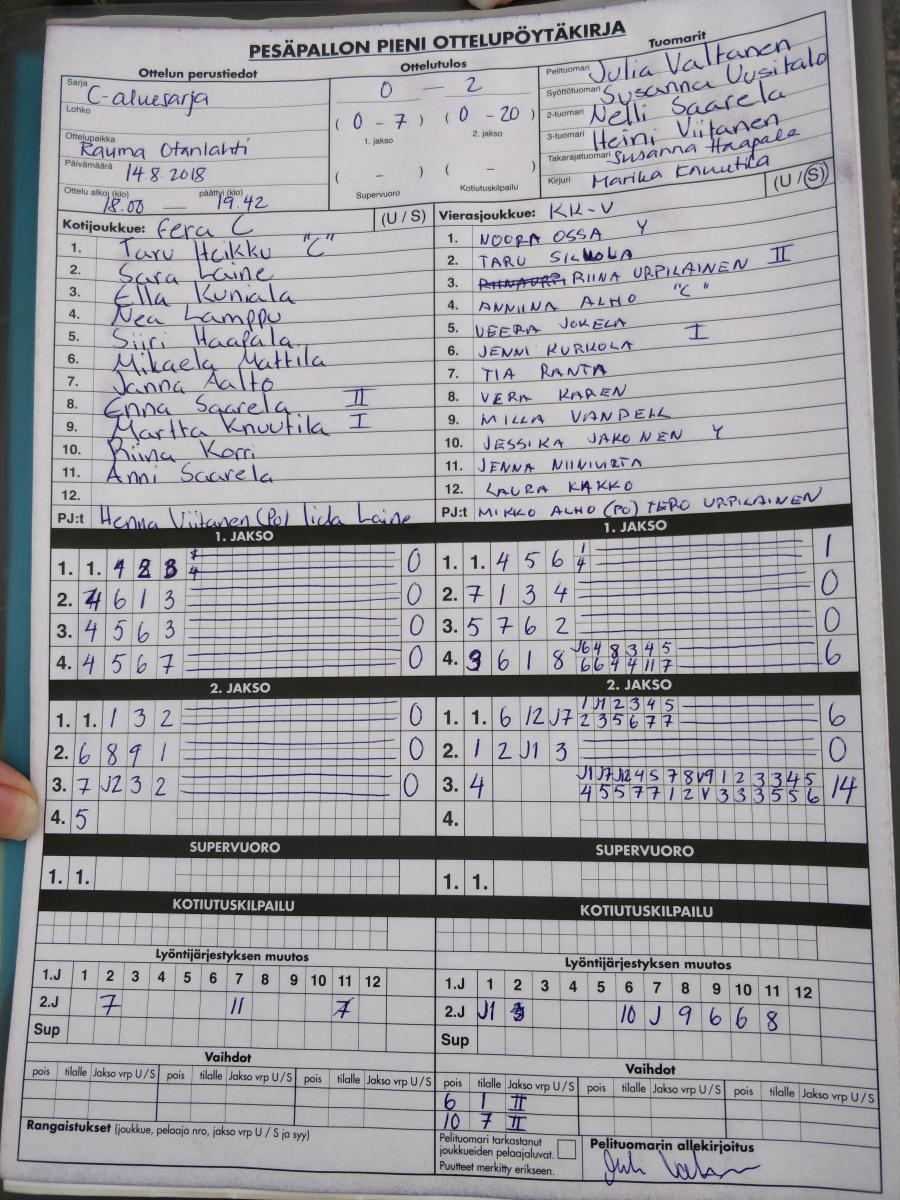 PESÄPALLON PIENI OTTELUPÖYTÄKIRJA
Ottelun perustiedot
Sarja C-aluesarja
Lohko
Ottelupaikka Rauma Otanlahti
Päivämäärä 14 8.2018
Ottelu alkoi (klo) päättyi (klo)
18.00 — 19.42
Ottelutulos
0 — 2
( 0 - 7 ) ( 0 - 20 )
1. jakso 2. jakso
( - ) ( - )
Supervuoro Kotiutuskilpailu
Tuomarit
Pelituomari Julia Valtanen
Syöttötuomari Susanna Uusitalo
2-tuomari Nelli Saarela
3-tuomari Heini Viitanen
Takarajatuomari Susanna Haapala
Kirjuri Marika Knuutila
Kotijoukkue: Fera C (U / S)
1. Taru Heikku "C"
2. Sara Laine
3. Ella Kuniala
4. Nea Lamppu
5. Siiri Haapala
6. Mikaela Mattila
7. Janna Aalto
8. Enna Saarela II
9. Martta Knuutila I
10. Riina Korri
11. Anni Saarela
12.
PJ:t Henna Viitanen (Po) Iida Laine
Vierasjoukkue: KK-V (U / S)
1. NOORA OSSA Y
2. TARU
3. RIINA URPILAINEN II
4. ANNIINA ALHO "C"
5. VEERA JOKELA
6. JENNI KURKOLA I
7. TIA RANTA
8. VERA KAREN
9. MILLA VANDELL
10. JESSIKA JAKONEN Y
11. JENNA NIINIVIRTA
12. LAURA KAKKO
PJ:t MIKKO ALHO (PO) TERO URPILAINEN
1. JAKSO
1. 1. 0
2. 4 6 1 3 0
3. 4 5 6 3 0
4. 4 5 6 7 0
2. JAKSO
1. 1. 1 3 2 0
2. 6 8 9 1 0
3. 7 J2 3 2 0
4. 5
SUPERVUORO
1. 1.
KOTIUTUSKILPAILU
Lyöntijärjestyksen muutos
1.J 1 2 3 4 5 6 7 8 9 10 11 12
2.J 7 11 7
Sup
Vaihdot
pois tilalle Jakso vrp U / S pois tilalle Jakso vrp U / S pois tilalle Jakso vrp U / S
Rangaistukset (joukkue, pelaaja nro, jakso vrp U / S ja syy)
1. JAKSO
1. 1. 4 5 6 1 1
4
2. 7 1 3 4 0
3. 5 7 6 2 0
4. 3 6 1 8 J6 4 8 3 4 5 6
6 6 4 4 11 7
2. JAKSO
1. 1. 6 12 J7 1 J1 2 3 4 5 6
2 3 5 6 7 7
2. 1 2 J1 3 0
3. 4 J1 J7 J12 4 5 7 8 V9 1 2 3 3 4 5 14
4 5 5 7 7 1 2 V 3 3 3 5 5 6
4.
SUPERVUORO
1. 1.
KOTIUTUSKILPAILU
Lyöntijärjestyksen muutos
1.J 1 2 3 4 5 6 7 8 9 10 11 12
2.J J1 10 J 9 6 6 8
Sup
Vaihdot
pois tilalle Jakso vrp U / S pois tilalle Jakso vrp U / S pois tilalle Jakso vrp U / S
6 1 II
10 7 II
Pelituomari tarkastanut
joukkueiden pelaajaluvat.
Puutteet merkitty erikseen.
Pelituomarin allekirjoitus